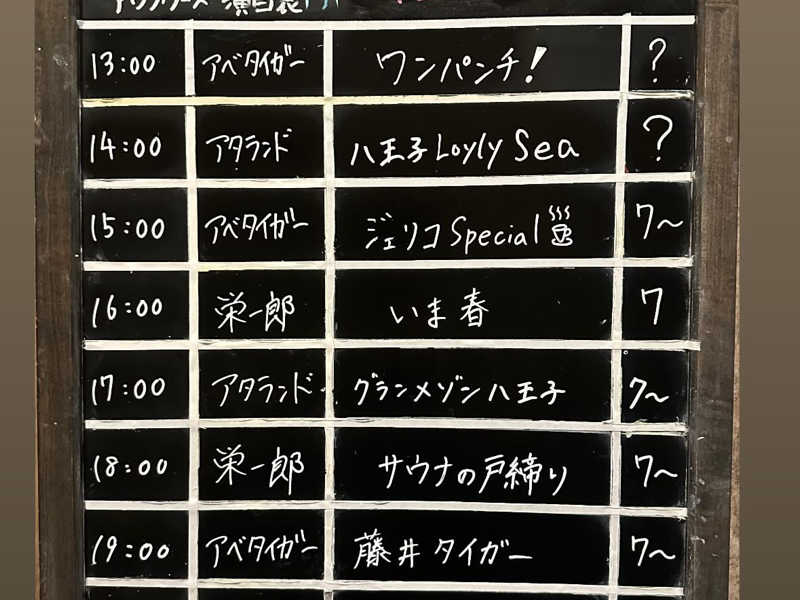 13:00 アベタイガー ワンパンチ! ?
14:00 アタランド 八王子 Loyly Sea ?
15:00 アベタイガー ジェリコ Special 7～
16:00 栄一郎 いま春 7
17:00 アタランド グランメゾン八王子 7～
18:00 栄一郎 サウナの戸締り 7～
19:00 アベタイガー 藤井タイガー 7～